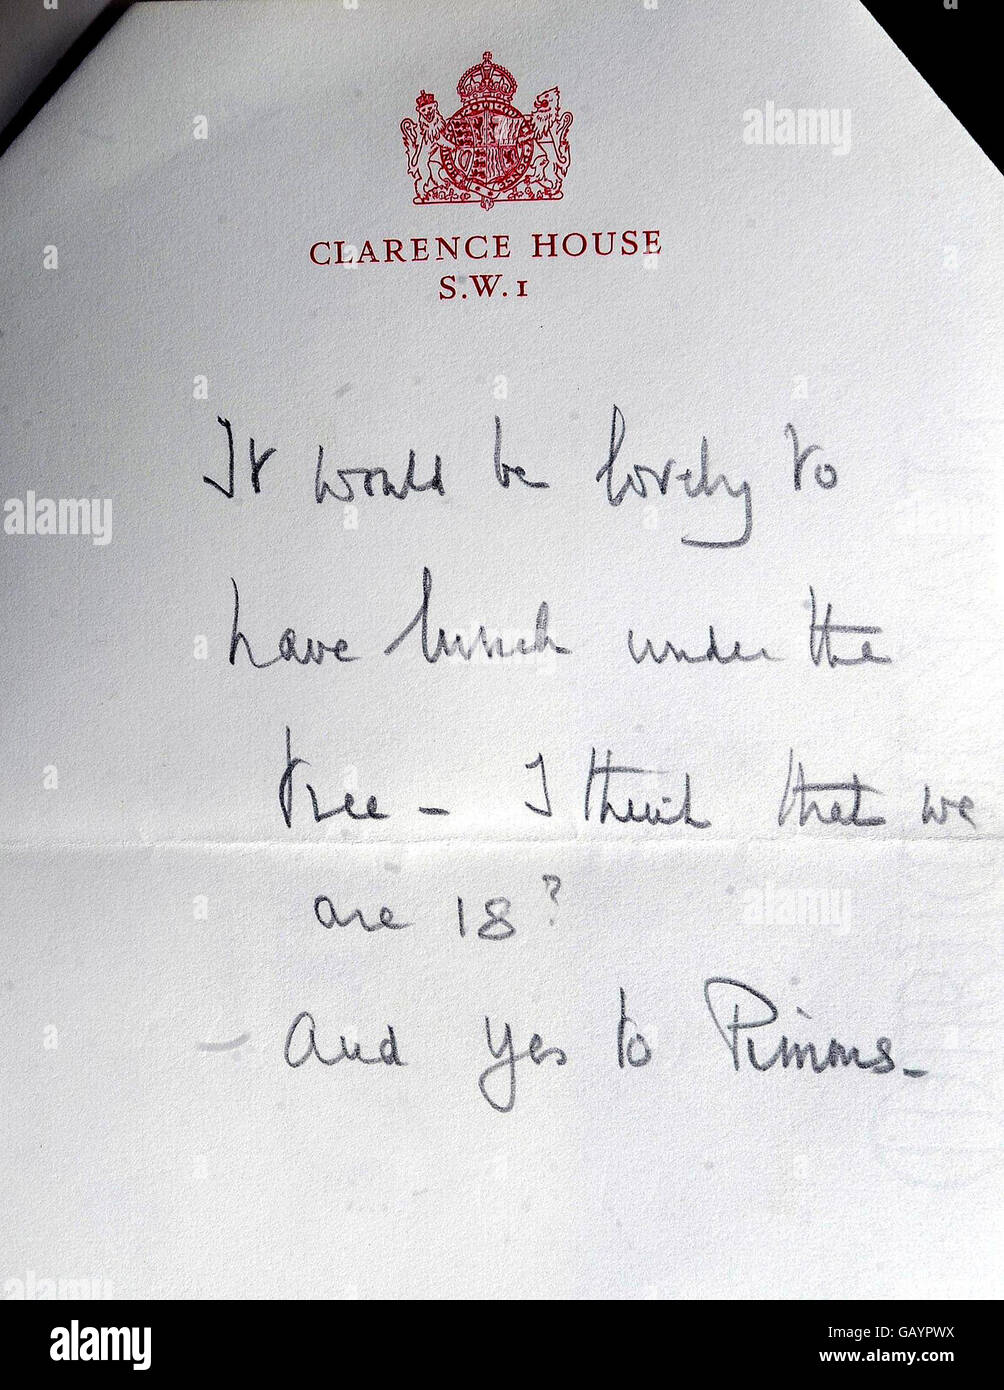 CLARENCE HOUSE
S.W.1
It would be lovely to
have lunch under the
tree – I think that we
are 18?
– And yes to Pimms –
alamy
Image ID: GAYPWX
www.alamy.com